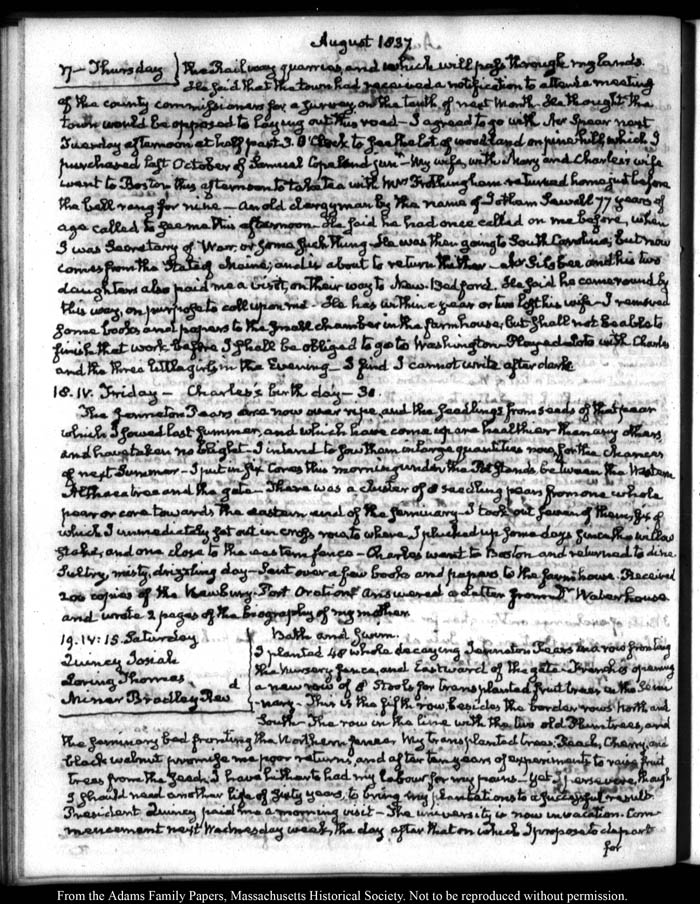 August 1837
17 — Thursday } the Railway quarries and which will pass through my lands.
He said that the town had received a notification to attend a meeting
of the county commissioners for a survey, on the tenth of next Month. He thought the
town would be opposed to laying out this road — I agreed to go with Mr Spear next
Tuesday afternoon at half past 3. O'Clock to see the lot of woodland on pine hill, which I
purchased last October of Lemuel Copeland junr — My wife, with Mary and Charles's wife
went to Boston this afternoon to take tea with Mrs Frothingham returned home just before
the bell rang for nine — An old clergyman by the name of Jotham Sewell 77 years of
age called to see me this afternoon. He said he had once called on me before, when
I was Secretary of War, or some such thing. He was then going to South Carolina; but now
comes from the State of Maine; and is about to return thither — Mr Silsbee and his two
daughters also paid me a visit, on their way to New-Bedford. He said he came round by
this way, on purpose to call upon me. He has within a year or two lost his wife — I removed
some books and papers to the small chamber in the farmhouse, but shall not be able to
finish that work before I shall be obliged to go to Washington. Played Loto with Charles
and the three little girls in the Evening — I find I cannot write after dark
18. IV. Friday — Charles's birth day — 30.
The Jenneton Pears are now over ripe, and the seedlings from seeds of that pear
which I sowed last summer, and which have come up are healthier than any others
and have taken no blight — I intend to sow them in large quantities now, for the chances
of next Summer — I put in six Cores this morning under the Pot stands between the Western
Althaea tree and the gate — There was a cluster of 8 seedling pears from one whole
pear or core towards the eastern end of the seminary. I took out seven of them, six of
which I immediately set out in cross row to where I plucked up some days since the willow
stake, and one close to the eastern fence — Charles went to Boston and returned to dine
Sultry, misty, drizzling day — Sent over a few books and papers to the farmhouse. Received
200 copies of the Newbury-Port Oration. Answered a Letter from Dr Waterhouse
and wrote 2 pages of the biography of my mother.
19. IV: 15. Saturday
Quincy Josiah
Loring Thomas. d
Miner Bradley Rev
Bath and swim.
I planted 48 whole decaying Jenneton Pears in a row fronting
the Nursery fence, and Eastward of the gate. French is opening
a new row of 8 Stools for transplanted fruit trees in the Semi-
nary. This is the fifth row, besides the border rows North and
South. The row in the line with the two old Plum trees, and
the seminary bed fronting the Northern fence. My transplanted trees; Peach, Cherry, and
black walnut promise me poor returns, and after ten years of experiments to raise fruit
trees from the seed, I have hitherto had my labour for my pains — yet I persevere, though
I should need another life of sixty years, to bring my plantations to a successful result.
President Quincy paid me a morning visit — The University is now in vacation. Com-
mencement next Wednesday week, the day after that on which I propose to depart
for
From the Adams Family Papers, Massachusetts Historical Society. Not to be reproduced without permission.